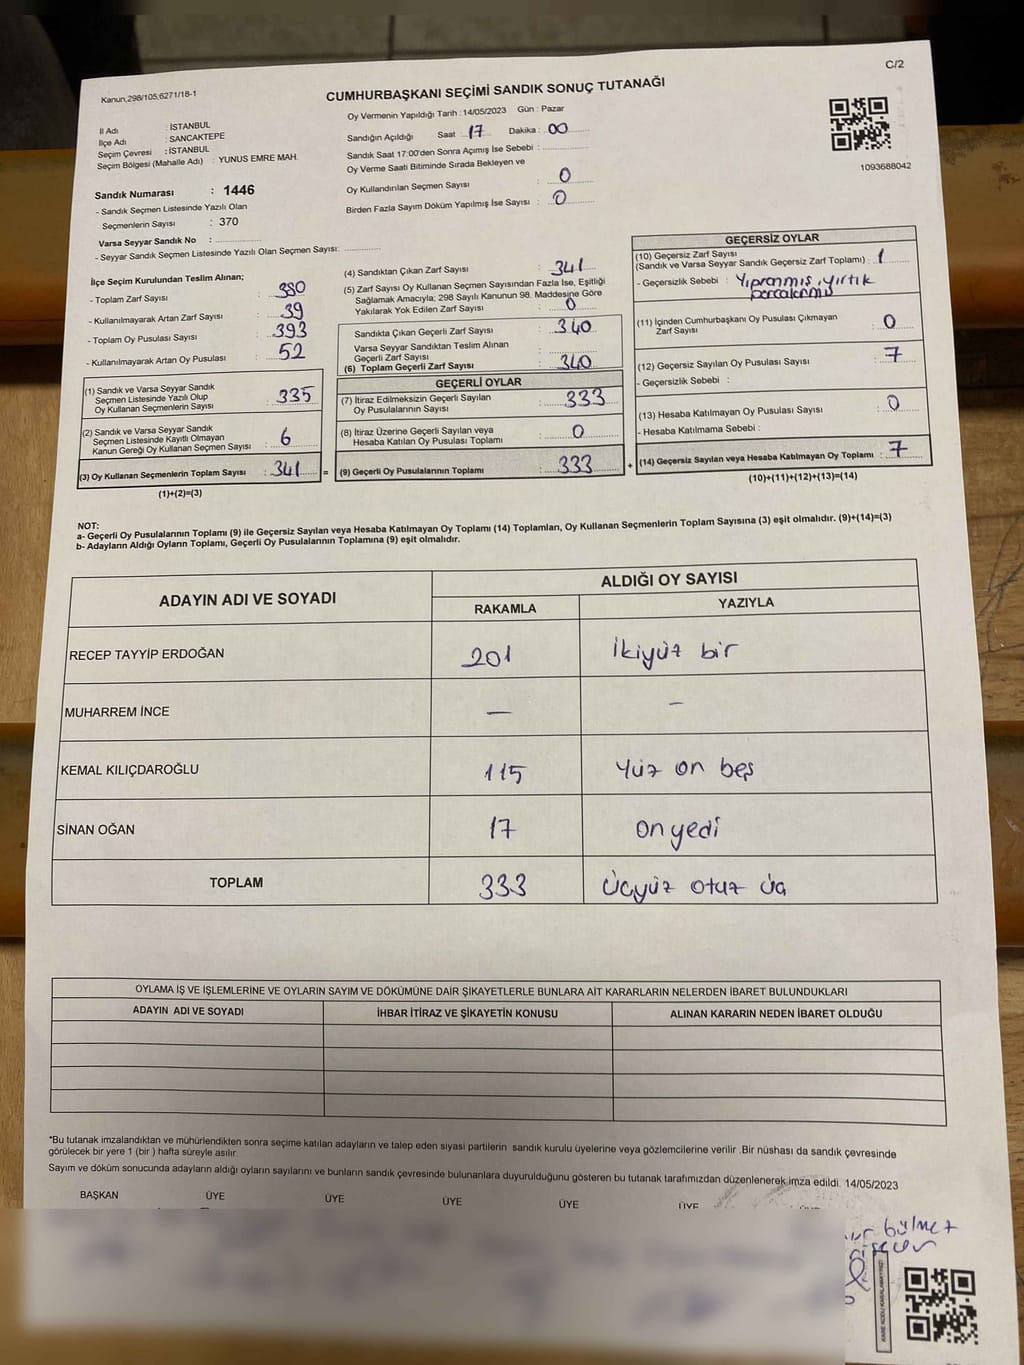 C/2
Kanun;298/105;6271/18-1
CUMHURBAŞKANI SEÇİMİ SANDIK SONUÇ TUTANAĞI
İl Adı : İSTANBUL
İlçe Adı : SANCAKTEPE
Seçim Çevresi : İSTANBUL
Seçim Bölgesi (Mahalle Adı) : YUNUS EMRE MAH.
Sandık Numarası : 1446
- Sandık Seçmen Listesinde Yazılı Olan
Seçmenlerin Sayısı : 370
Varsa Seyyar Sandık No :
- Seyyar Sandık Seçmen Listesinde Yazılı Olan Seçmen Sayısı:
Oy Vermenin Yapıldığı Tarih :14/05/2023 Gün : Pazar
Sandığın Açıldığı Saat : 17 Dakika : 00
Sandık Saat 17:00'den Sonra Açımış İse Sebebi :
Oy Verme Saati Bitiminde Sırada Bekleyen ve
Oy Kullandırılan Seçmen Sayısı : 0
Birden Fazla Sayım Döküm Yapılmış İse Sayısı : 0
1093688042
İlçe Seçim Kurulundan Teslim Alınan;
- Toplam Zarf Sayısı : 380
- Kullanılmayarak Artan Zarf Sayısı : 39
- Toplam Oy Pusulası Sayısı : 393
- Kullanılmayarak Artan Oy Pusulası : 52
(1) Sandık ve Varsa Seyyar Sandık
Seçmen Listesinde Yazılı Olup
Oy Kullanan Seçmenlerin Sayısı : 335
(2) Sandık ve Varsa Seyyar Sandık
Seçmen Listesinde Kayıtlı Olmayan
Kanun Gereği Oy Kullanan Seçmen Sayısı : 6
(3) Oy Kullanan Seçmenlerin Toplam Sayısı : 341 =
(1)+(2)=(3)
(4) Sandıktan Çıkan Zarf Sayısı : 341
(5) Zarf Sayısı Oy Kullanan Seçmen Sayısından Fazla İse, Eşitliği
Sağlamak Amacıyla; 298 Sayılı Kanunun 98. Maddesine Göre
Yakılarak Yok Edilen Zarf Sayısı : 0
Sandıkta Çıkan Geçerli Zarf Sayısı : 340
Varsa Seyyar Sandıktan Teslim Alınan
Geçerli Zarf Sayısı :
(6) Toplam Geçerli Zarf Sayısı : 340
GEÇERLİ OYLAR
(7) İtiraz Edilmeksizin Geçerli Sayılan
Oy Pusulalarının Sayısı : 333
(8) İtiraz Üzerine Geçerli Sayılan veya
Hesaba Katılan Oy Pusulası Toplamı : 0
(9) Geçerli Oy Pusulalarının Toplamı : 333 +
GEÇERSİZ OYLAR
(10) Geçersiz Zarf Sayısı
(Sandık ve Varsa Seyyar Sandık Geçersiz Zarf Toplamı) : 1
- Geçersizlik Sebebi : Yıpranmış, yırtık
parçalanmış
(11) İçinden Cumhurbaşkanı Oy Pusulası Çıkmayan
Zarf Sayısı : 0
(12) Geçersiz Sayılan Oy Pusulası Sayısı : 7
- Geçersizlik Sebebi :
(13) Hesaba Katılmayan Oy Pusulası Sayısı : 0
- Hesaba Katılmama Sebebi :
(14) Geçersiz Sayılan veya Hesaba Katılmayan Oy Toplamı : 7
(10)+(11)+(12)+(13)=(14)
NOT:
a- Geçerli Oy Pusulalarının Toplamı (9) ile Geçersiz Sayılan veya Hesaba Katılmayan Oy Toplamı (14) Toplamları, Oy Kullanan Seçmenlerin Toplam Sayısına (3) eşit olmalıdır. (9)+(14)=(3)
b- Adayların Aldığı Oyların Toplamı, Geçerli Oy Pusulalarının Toplamına (9) eşit olmalıdır.
ADAYIN ADI VE SOYADI
ALDIĞI OY SAYISI
RAKAMLA YAZIYLA
RECEP TAYYİP ERDOĞAN 201 İkiyüz bir
MUHARREM İNCE — –
KEMAL KILIÇDAROĞLU 115 Yüz on beş
SİNAN OĞAN 17 on yedi
TOPLAM 333 Üçyüz otuz üç
OYLAMA İŞ VE İŞLEMLERİNE VE OYLARIN SAYIM VE DÖKÜMÜNE DAİR ŞİKAYETLERLE BUNLARA AİT KARARLARIN NELERDEN İBARET BULUNDUKLARI
ADAYIN ADI VE SOYADI İHBAR İTİRAZ VE ŞİKAYETİN KONUSU ALINAN KARARIN NEDEN İBARET OLDUĞU
*Bu tutanak imzalandıktan ve mühürlendikten sonra seçime katılan adayların ve talep eden siyasi partilerin sandık kurulu üyelerine veya gözlemcilerine verilir .Bir nüshası da sandık çevresinde
görülecek bir yere 1 (bir ) hafta süreyle asılır.
Sayım ve döküm sonucunda adayların aldığı oyların sayılarını ve bunların sandık çevresinde bulunanlara duyurulduğunu gösteren bu tutanak tarafımızdan düzenlenerek imza edildi. 14/05/2023
BAŞKAN ÜYE ÜYE ÜYE ÜYE ÜYE